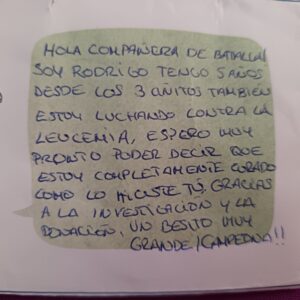 HOLA COMPAÑERA DE BATALLA!
SOY RODRIGO TENGO 5 AÑOS
DESDE LOS 3 AÑITOS TAMBIÉN
ESTOY LUCHANDO CONTRA LA
LEUCEMIA, ESPERO MUY
PRONTO PODER DECIR QUE
ESTOY COMPLETAMENTE CURADO
COMO LO HICISTE TÚ, GRACIAS
A LA INVESTIGACIÓN Y LA
DONACIÓN, UN BESITO MUY
GRANDE ¡CAMPEONA!!